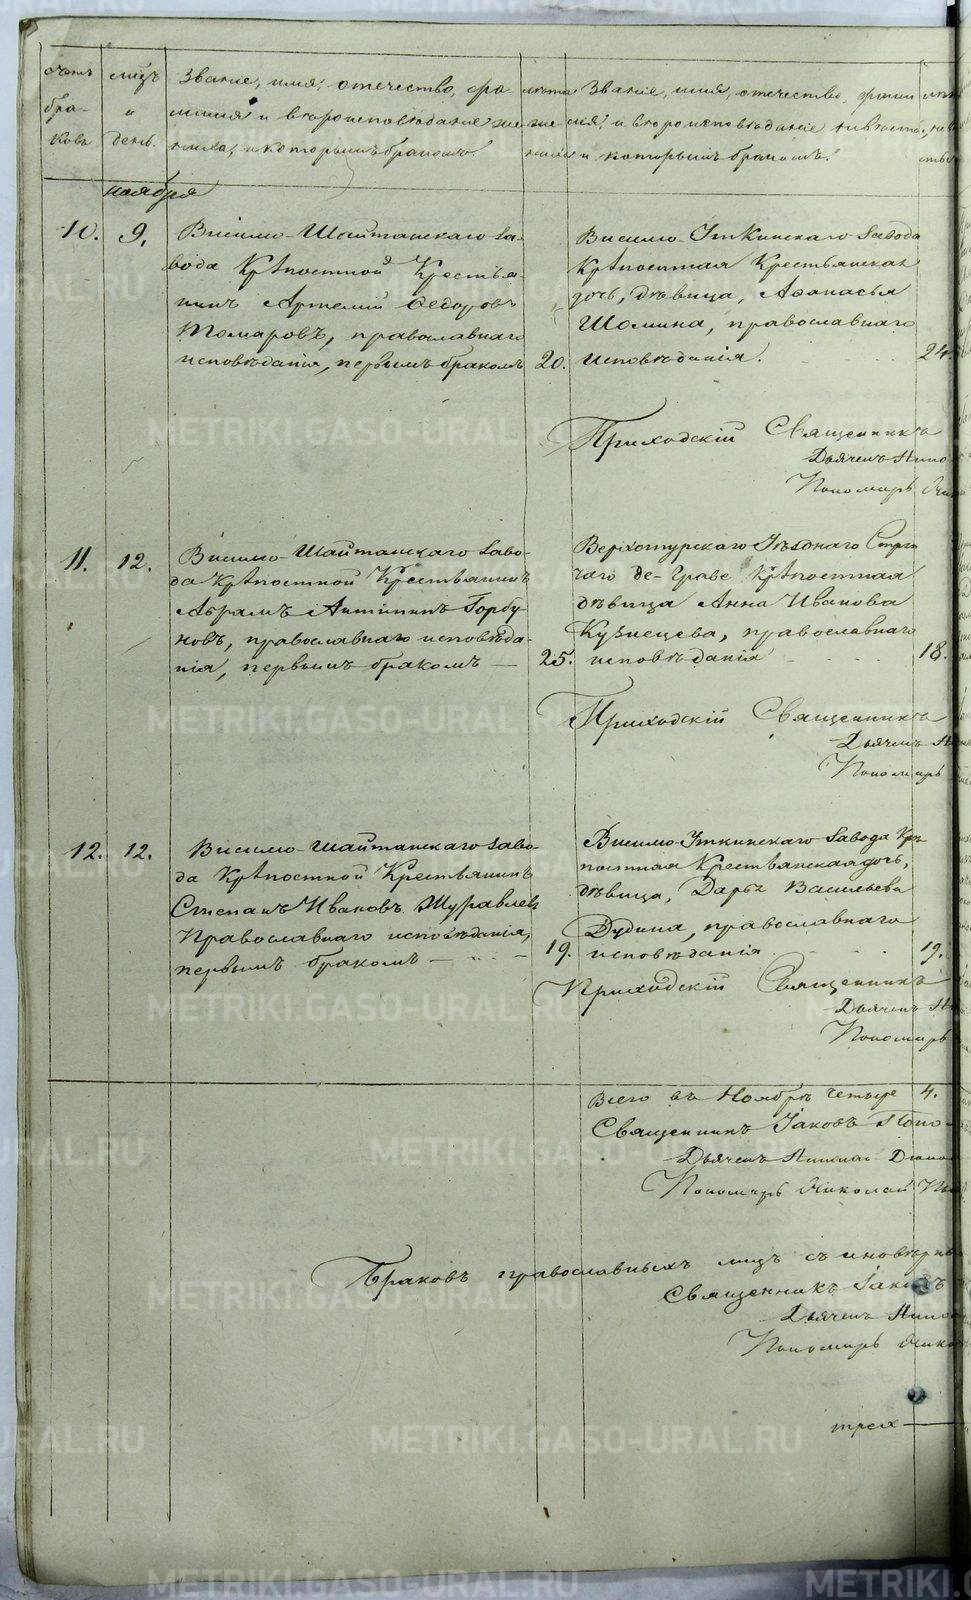 счетъ
бра-
ковъ
мѣсъ
и
день.
Званіе, имя, отечество, фа-
милія и вѣроисповѣданіе же-
ниха, и которымъ бракомъ.
лѣта
же-
ниха
Званіе, имя, отечество, фами
лія, и вѣроисповѣданіе невѣсты,
и которымъ бракомъ.
лѣта
ноября
10.
9.
Висимо-Шайтанскаго За-
вода Крѣпостной Крестья-
нинъ Артемій Ѳедоровъ
Томаровъ, православнаго
исповѣданія, первымъ бракомъ
20.
Висимо-Уткинскаго Завода
Крѣпостная Крестьянская
дочь, дѣвица, Аѳанасья
Шомина, православнаго
исповѣданія.
24.
Приходскій Священникъ
Дьячекъ
Пономарь
11.
12.
Висимо-Шайтанскаго Заво-
да Крѣпостной Крестьянинъ
Абрамъ Антипинъ Горбу-
новъ, православнаго исповѣда-
нія, первымъ бракомъ —
25.
Верхотурскаго Уѣзднаго Стряп
чаго де-Граве Крѣпостная
дѣвица Анна Иванова
Кузнецова, православнаго
исповѣданія
18.
Приходскій Священникъ
Дьячекъ
Пономарь
12.
12.
Висимо-Шайтанскаго Заво-
да Крѣпостной Крестьянинъ
Степанъ Ивановъ Журавлевъ
Православнаго исповѣданія,
первымъ бракомъ —
19.
Висимо-Уткинскаго Завода Крѣ-
постная Крестьянская дочь,
дѣвица, Дарья Васильева
Дудина, православнаго
исповѣданія
19.
Приходскій Священникъ
Дьячекъ
Пономарь
Всего въ Ноябрѣ четыре 4.
Священникъ Іаковъ Попо
Дьячекъ
Пономарь Николай
Браковъ православныхъ лицъ съ иновѣрны
Священникъ Іаковъ
Дьячекъ
Пономарь Нико
трех
METRIKI.GASO-URAL.RU